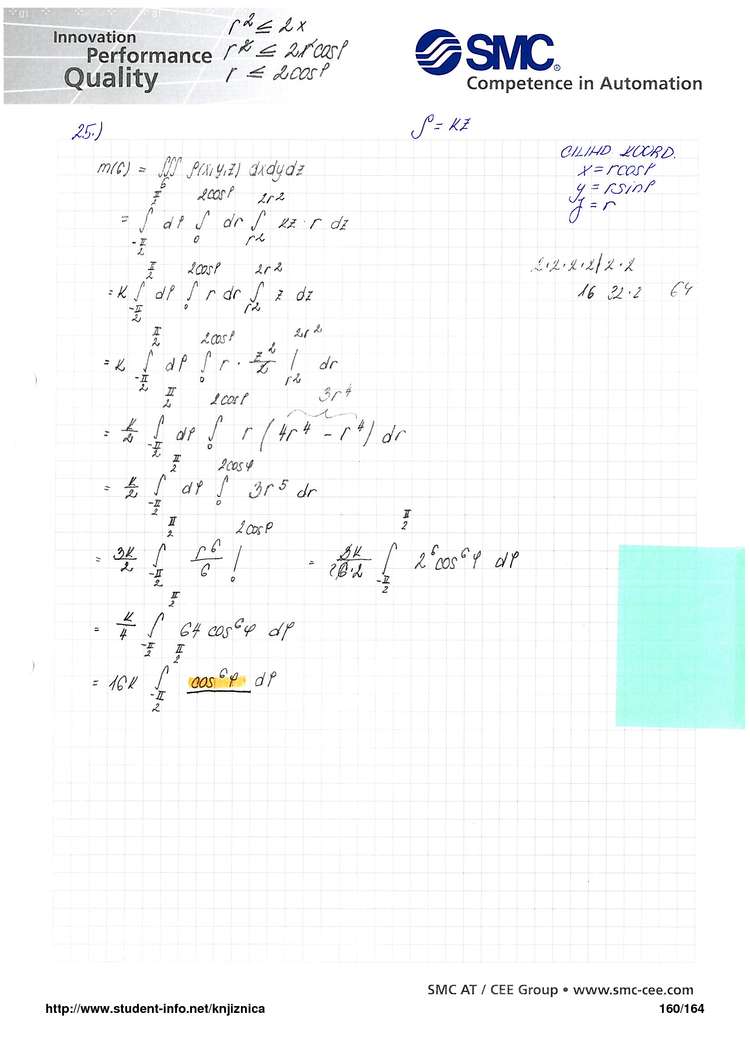 Innovation
Performance
Quality
r² ≤ 2x
r² ≤ 2r cosφ
r ≤ 2cosφ
SMC®
Competence in Automation
25.)
ρ = kz
CILIND KOORD.
x = r cosφ
y = r sinφ
z = r
m(G) = ∭_G ρ(x,y,z) dxdydz
= ∫_{-π/2}^{π/2} dφ ∫_0^{2cosφ} dr ∫_{r²}^{2r²} kz · r dz
2·2·2·2/2·2
16 32·2 64
= k ∫_{-π/2}^{π/2} dφ ∫_0^{2cosφ} r dr ∫_{r²}^{2r²} z dz
= k ∫_{-π/2}^{π/2} dφ ∫_0^{2cosφ} r · z²/2 |_{r²}^{2r²} dr
3r⁴
= k/2 ∫_{-π/2}^{π/2} dφ ∫_0^{2cosφ} r (4r⁴ − r⁴) dr
= k/2 ∫_{-π/2}^{π/2} dφ ∫_0^{2cosφ} 3r⁵ dr
= 3k/2 ∫_{-π/2}^{π/2} r⁶/6 |_0^{2cosφ} = 3k/6·2 ∫_{-π/2}^{π/2} 2⁶cos⁶φ dφ
= k/4 ∫_{-π/2}^{π/2} 64 cos⁶φ dφ
= 16k ∫_{-π/2}^{π/2} cos⁶φ dφ
SMC AT / CEE Group • www.smc-cee.com
http://www.student-info.net/knjiznica
160/164